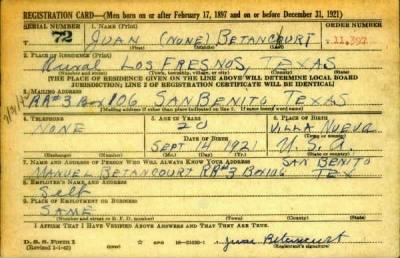 REGISTRATION CARD—(Men born on or after February 17, 1897 and on or before December 31, 1921)
SERIAL NUMBER 1. NAME (Print) ORDER NUMBER
72 JUAN (NONE) BETANCOURT 11,397
(First) (Middle) (Last)
2. PLACE OF RESIDENCE (Print)
Rural LOS FRESNOS, TEXAS
(Number and street) (Town, township, village, or city) (County) (State)
[THE PLACE OF RESIDENCE GIVEN ON THE LINE ABOVE WILL DETERMINE LOCAL BOARD
JURISDICTION; LINE 2 OF REGISTRATION CERTIFICATE WILL BE IDENTICAL]
3. MAILING ADDRESS
RR#3 Box 106, SAN BENITO, TEXAS
[Mailing address if other than place indicated on line 2. If same insert word same]
4. TELEPHONE 5. AGE IN YEARS 6. PLACE OF BIRTH
NONE 20 VILLA NUEVA
DATE OF BIRTH (Town or county)
SEPT 14 1921 U.S.A.
(Exchange) (Number) (Mo.) (Day) (Yr.) (State or country)
7. NAME AND ADDRESS OF PERSON WHO WILL ALWAYS KNOW YOUR ADDRESS SAN BENITO
MANUEL BETANCOURT RR#3 BOX 106 TEX
8. EMPLOYER'S NAME AND ADDRESS
Self
9. PLACE OF EMPLOYMENT OR BUSINESS
SAME
(Number and street or R. F. D. number) (Town) (County) (State)
I AFFIRM THAT I HAVE VERIFIED ABOVE ANSWERS AND THAT THEY ARE TRUE.
D. S. S. Form 1
(Revised 1-1-42) (over) Juan Betancourt
(Registrant's signature)